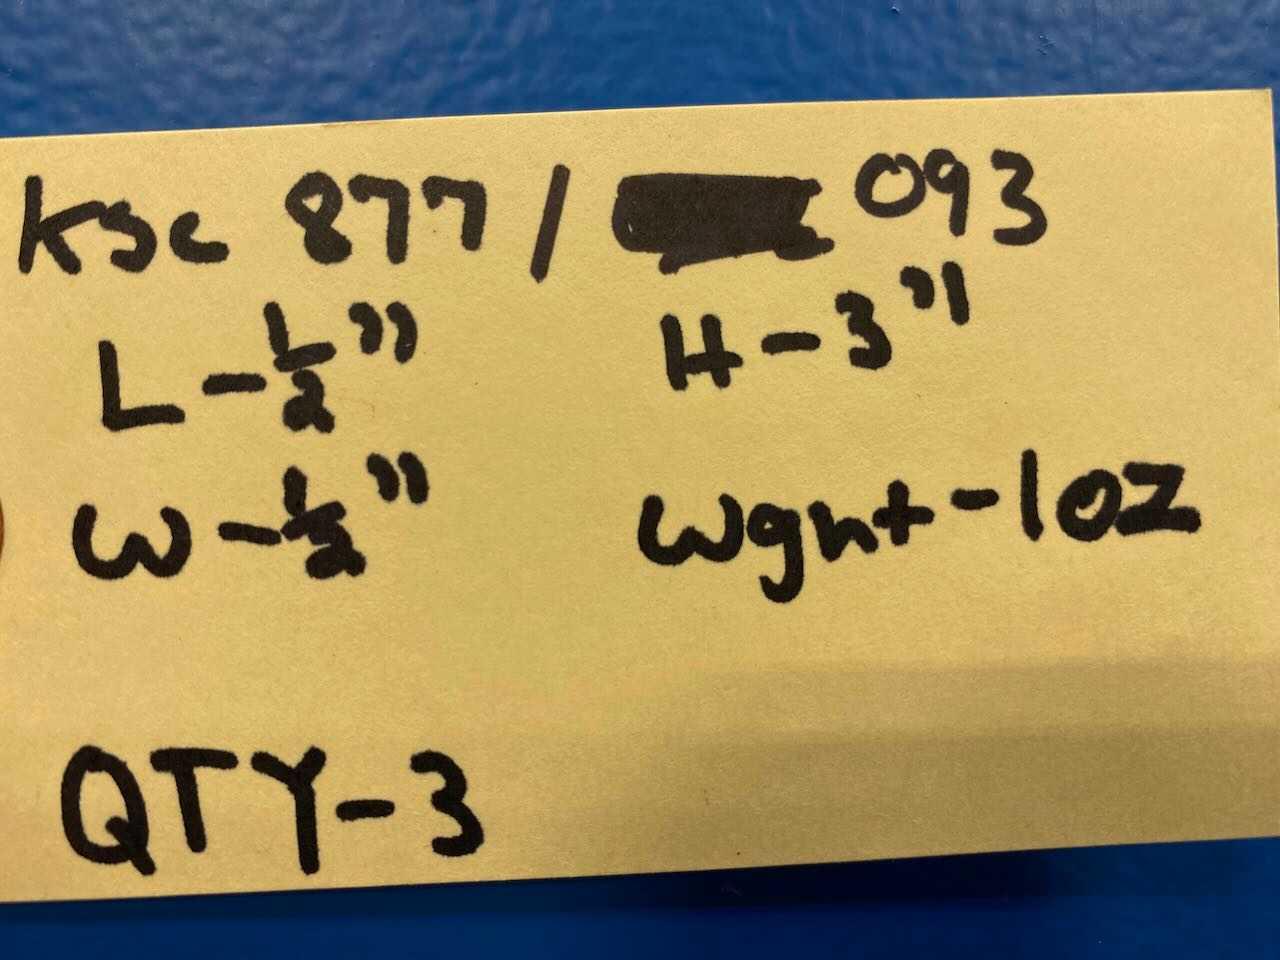 Ksc 877 / 093
L - 1/2" H - 3"
W - 1/2" Wght - 1oz
QTY - 3